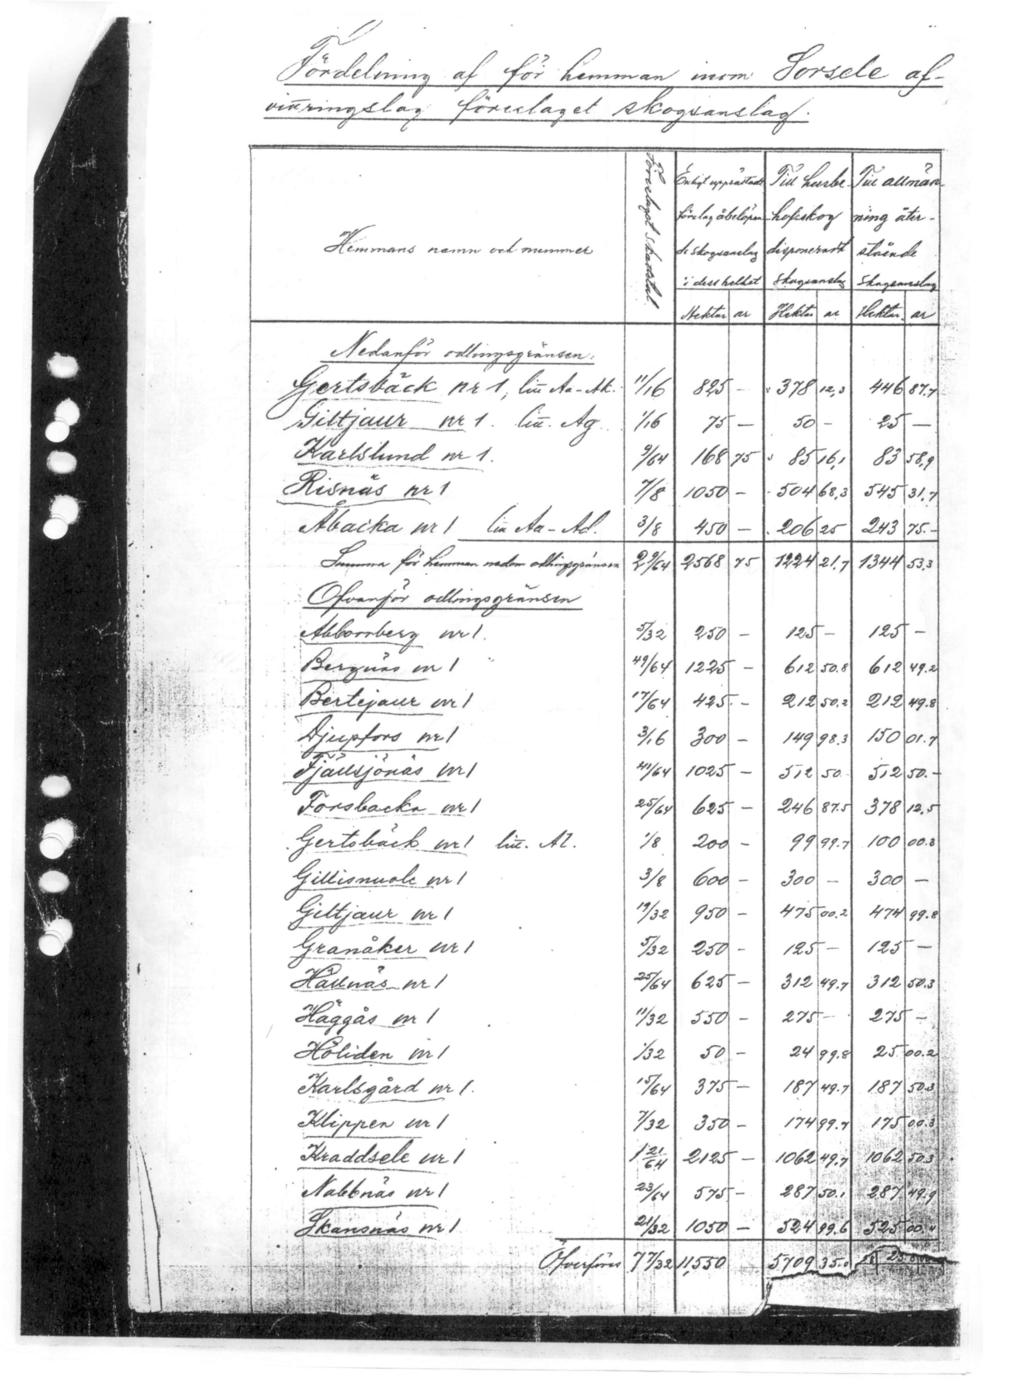 Fördelning af för hemman inom Sorsele af-
vittringslag föreslaget skogsanslag.
Hemmans namn och nummer
Föreslaget skattetal.
Enligt upprättadt förslag åbelöpande skogsanslag i dess helhet
Till husbehofsskog disponeradt skogsanslag
Till allmänning återstående skogsanslag
Hektar ar Hektar ar Hektar ar
Nedanför odlingsgränsen.
Gertsbäck nr 1, litt Aa-Ak. 11/16 825 — 378 12,3 446 87.7
Giltjaur nr 1. litt. Ag 1/16 75 — 50 - 25 —
Karlslund nr 1. 9/64 168 75 85 16,1 83 58,9
Risnäs nr 1 7/8 1050 - 504 68,3 545 31.7
Abacka nr 1 litt Aa-Ad. 3/8 450 — 206 25 243 75.-
Summa för hemman nedom odlingsgränsen 2 9/64 2568 75 1224 21.7 1344 53.3
Ofvanför odlingsgränsen
Abborrberg nr 1. 5/32 250 - 125 - 125 -
Bergnäs nr 1 49/64 1225 - 612 50.8 612 49.2
Bertejaur nr 1 17/64 425. - 212 50.2 212 49.8
Djupfors nr 1 3/16 300 - 149 98.3 150 01.7
Fjällsjönäs nr 1 41/64 1025 - 512 50 512 50.-
Forsbacka nr 1 25/64 625 - 246 87.5 378 12.5
Gertsbäck nr 1 litt. Al. 1/8 200 - 99 99.7 100 00.3
Gillisnuole nr 1 3/8 600 - 300 - 300 -
Giltjaur nr 1 19/32 950 - 475 00.2 474 99.8
Granåker nr 1 5/32 250 - 125 - 125 -
Hällnäs nr 1 25/64 625 - 312 49.7 312 50.3
Häggås nr 1 11/32 550 - 275 - 275 -
Höliden nr 1 1/32 50 - 24 99.8 25 00.2
Karlsgård nr 1. 15/64 375 - 187 49.7 187 50.3
Klippen nr 1 7/32 350 - 174 99.7 175 00.3
Kraddsele nr 1 1 21/64 2125 - 1062 49.7 1062 50.3
Nabbnäs nr 1 23/64 575 - 287 50.1 287 49.9
Skansnäs nr 1 21/32 1050 - 524 99.6 525 00.4
Öfverföres 7 7/32 11,550 5709 35.0